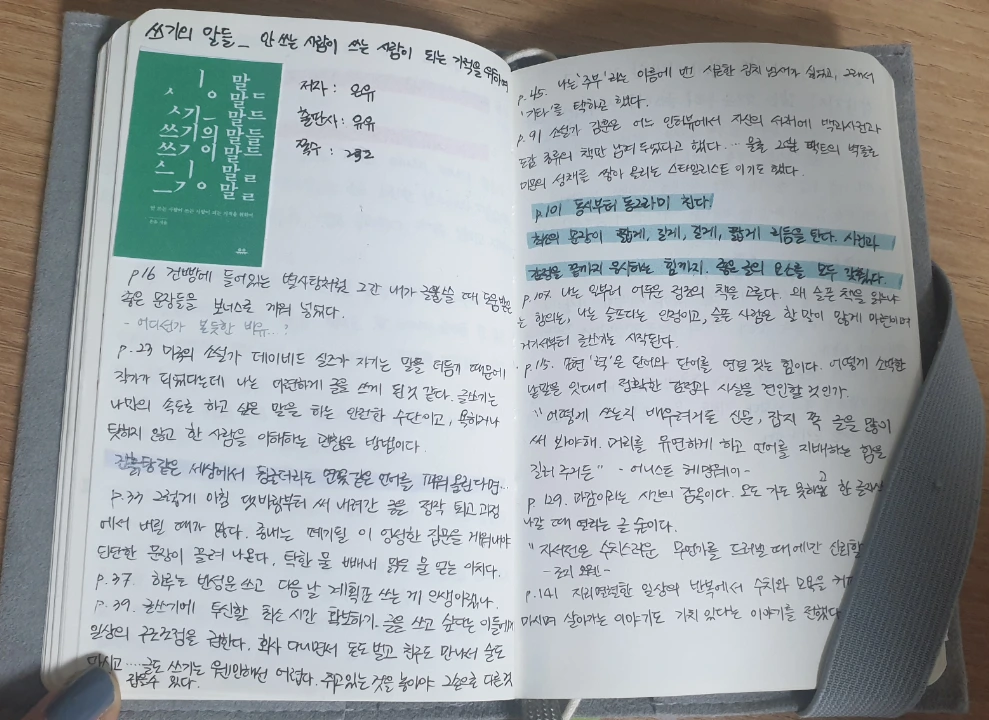 쓰기의 말들_ 안 쓰는 사람이 쓰는 사람이 되는 기적을 위하여
저자 : 은유
출판사 : 유유
쪽수 : 232
ㅣ 말
ㅅ ㅇ 말ㄷ
ㅅ기_ 말드
쓰기의 말들
쓰기이 말드
스ㅣ 말ㄹ
ㅡㄱㅇ말ㄹ
안 쓰는 사람이 쓰는 사람이 되는 기적을 위하여
은유 지음
유유
p16 건빵에 들어있는 별사탕처럼 그간 내가 글쓸 때 도움받은
좋은 문장들을 보너스로 끼워 넣었다.
- 어디선가 본듯한 비유...?
p.23 미국의 소설가 데이비드 실즈가 자기는 말을 더듬기 때문에
작가가 되었다는데 나는 미련하게 글을 쓰게 된 것 같다. 글쓰기는
나만의 속도로 하고 싶은 말을 하는 안전한 수단이고, 욕하거나
탓하지 않고 한 사람을 이해하는 괜찮은 방법이다.
진흙탕 같은 세상에서 뒹굴더라도 연꽃 같은 언어를 피워 올린다면...
p.33 그렇게 아침 댓바람부터 써 내려간 글은 정작 퇴고 과정
에서 버릴 때가 많다. 종내는 폐기될 이 엉성한 잡문을 게워내야
단단한 문장이 끌려 나온다. 탁한 물 빼내서 맑은 물 얻는 이치다.
p.37. 하루는 반성문 쓰고 다음 날 계획표 쓰는 게 인생이겠나.
p.39. 글쓰기에 투신할 최소 시간 확보하기. 글을 쓰고 싶다는 이들에게
일상의 구조조정을 권한다. 회사 다니면서 돈도 벌고 친구도 만나서 술도
마시고 ......글도 쓰기는 웬만해선 어렵다. 쥐고 있는 것을 놓아야 그 손으로 다른 것
잡을 수 있다.
p.45. 나는 '주부'라는 이름에 밴 시큼한 김치 냄새가 싫었고, 그래서
'기타'를 택하곤 했다.
p.91 소설가 김훈은 어느 인터뷰에서 자신의 서재에 백과사전과
도감 종류의 책만 남겨 두었다고 했다. ... 팩트의 벽돌로
미문의 성채를 쌓아 올리는 스타일리스트 이기도 했다.
p101 동시부터 동그라미 친다.
최선의 문장이 짧게, 길게, 길게, 짧게 리듬을 탄다. 사건과
감정을 끝까지 응시하는 힘까지. 좋은 글의 요소를 모두 갖췄다.
p.107. 나는 일부러 어두운 정조의 책을 고른다. 왜 슬픈 책을 읽느냐
는 항의는, 나는 슬프다는 인정이고, 슬픈 사람은 할 말이 많게 마련이며
거기서부터 글쓰기는 시작된다.
p.115. 표현'력'은 단어와 단어를 연결 짓는 힘이다. 어떻게 소박한
낱말을 잇대어 정확한 감정과 사실을 견인할 것인가.
"어떻게 쓰는지 배우려거든 신문, 잡지 쪽 글을 많이
써 보아야 해. 머리를 유연하게 하고 언어를 지배하는 힘을
길러 주거든" - 어니스트 헤밍웨이 -
p.129. 마감이라는 시간의 검음이다. 오도 가도 못하고 한 글자씩
나갈 때 열리는 글 숲이다.
"자서전은 수치스러운 무언가를 드러낼 때에만 신뢰할
- 조지 오웰 -
p.141 지리멸렬한 일상의 반복에서 수치와 모욕을 커피
마시며 살아가는 이야기도 가치 있다는 이야기를 전했다